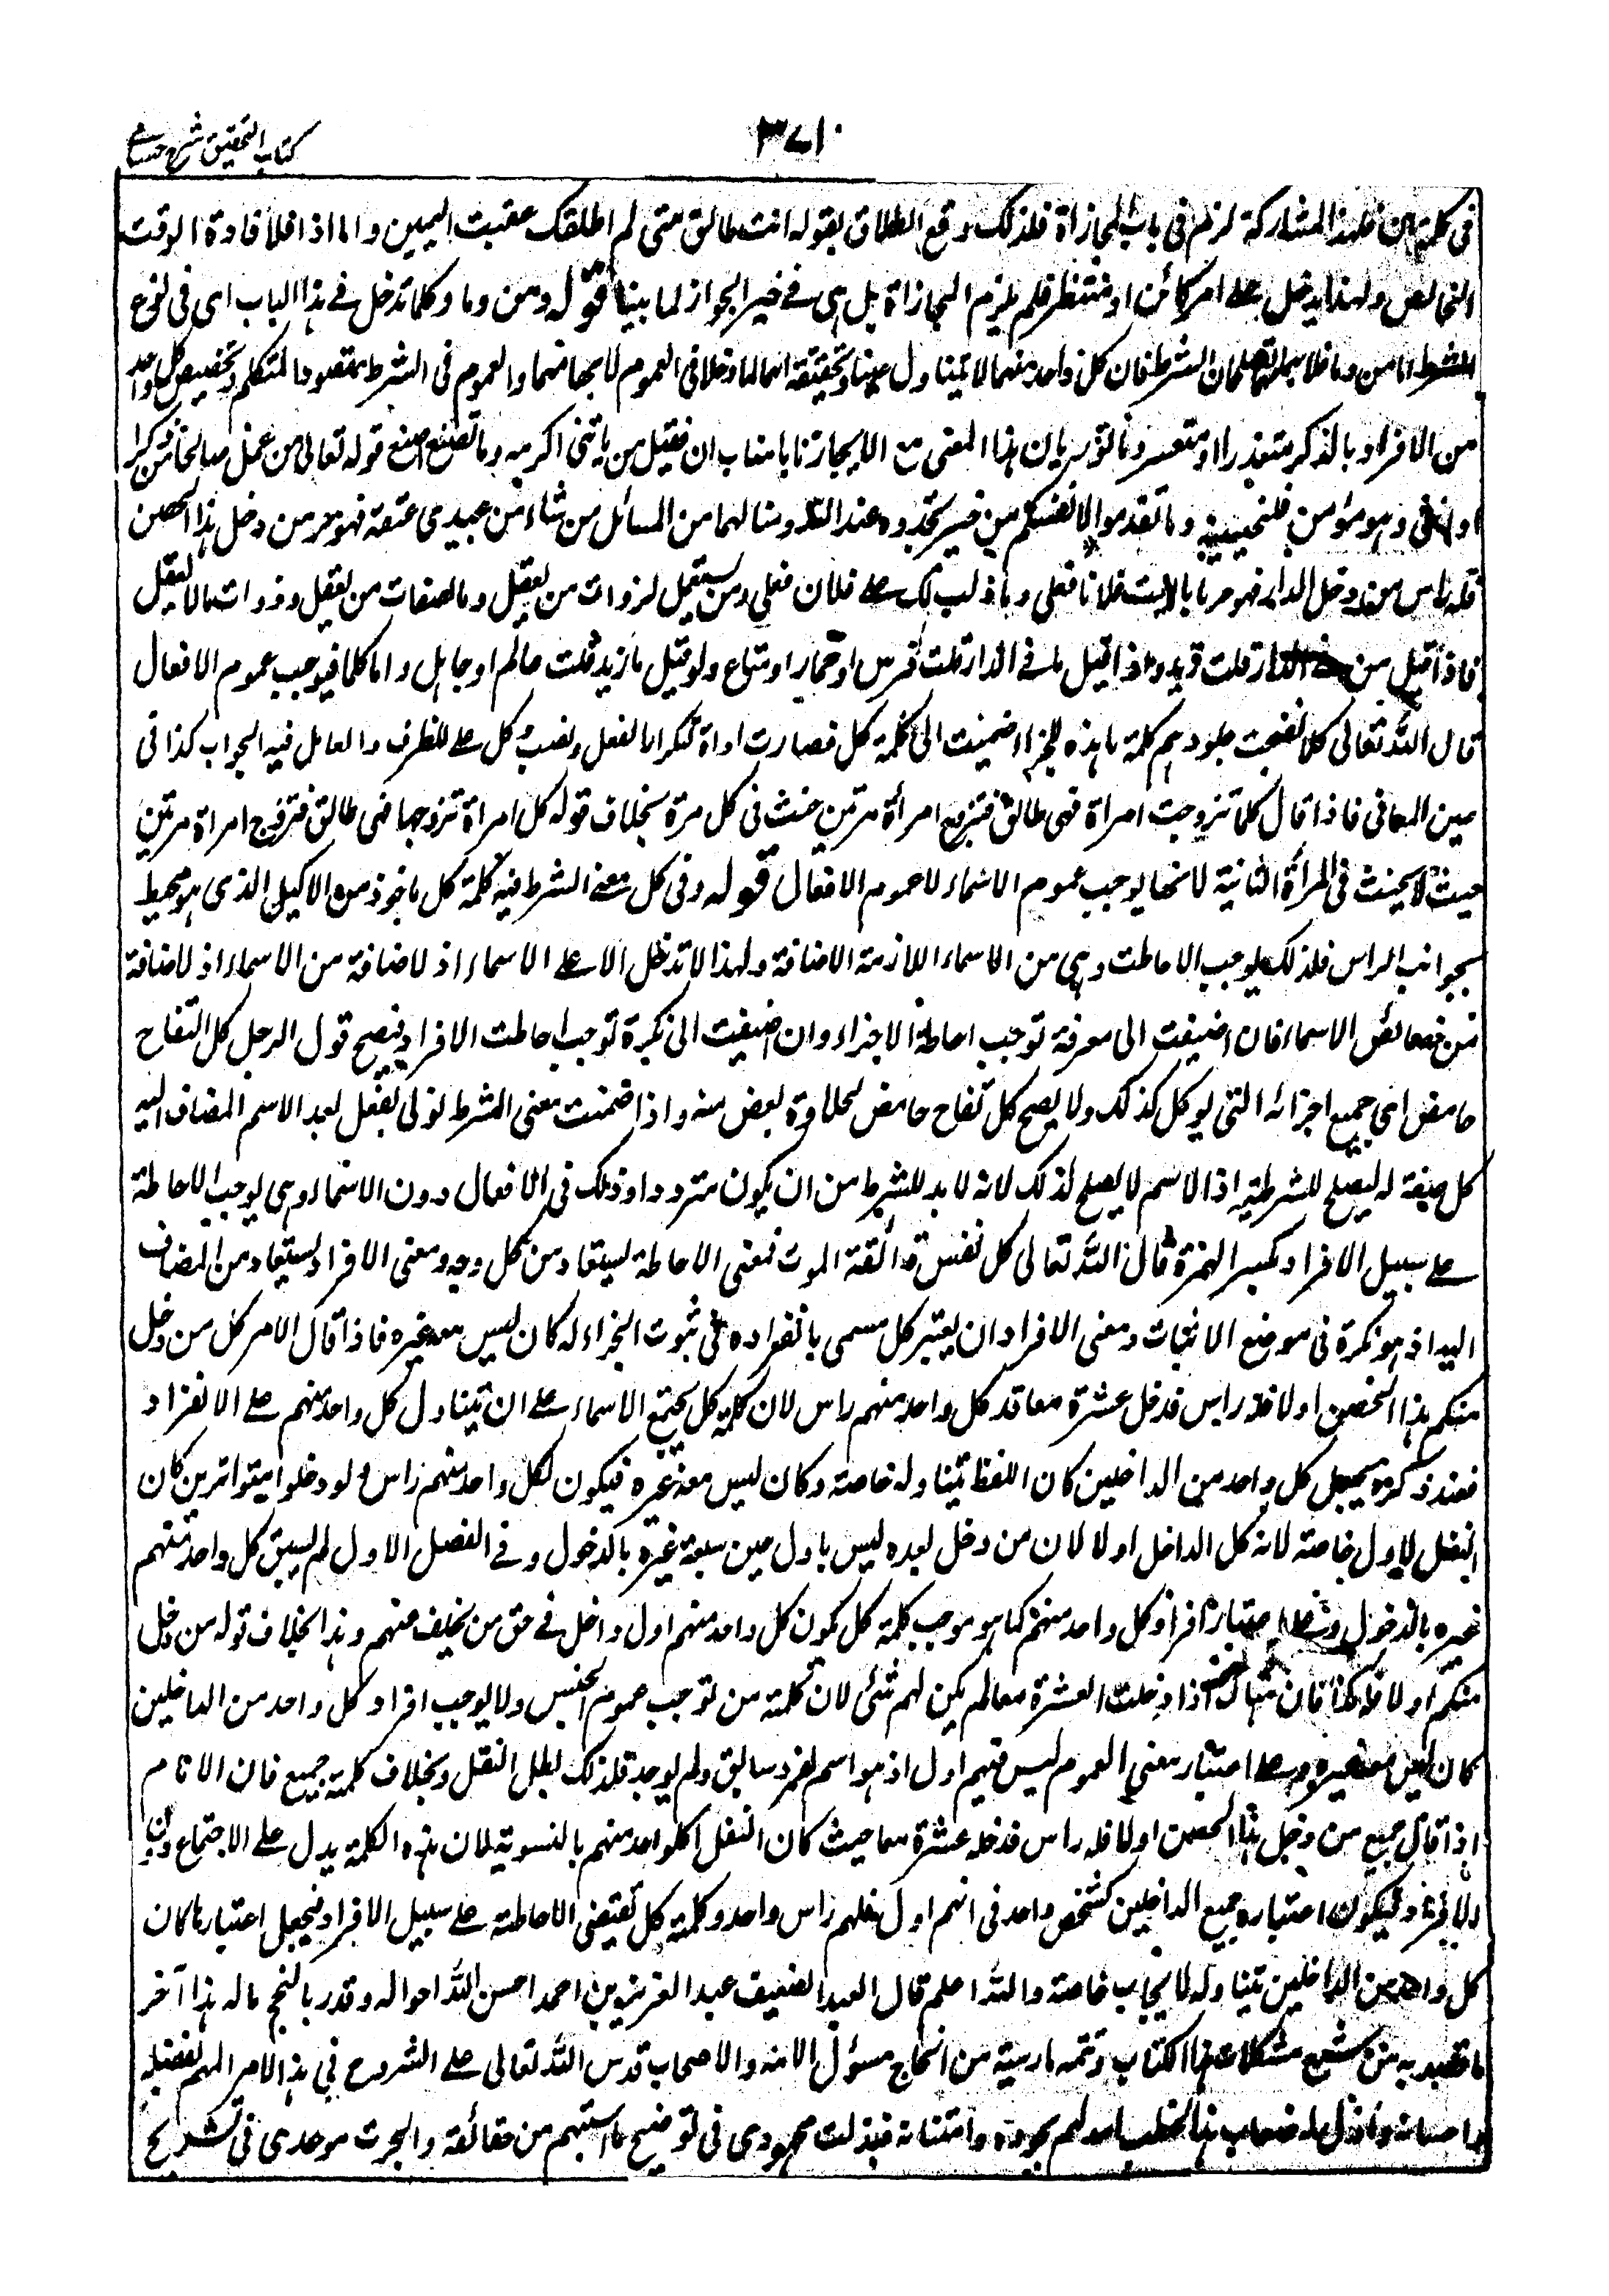 ٣٧١
كتاب التحقيق شرح حسامي
في كلمة ان فلهذا المشاركة لزم في باب المجازاة فلذلك وقع الطلاق بقوله انت طالق متى لم اطلقك عقيب اليمين واما اذا فلافادة الوقت
الخالص ولهذا يدخل على امر كائن او منتظر فلم يلزم المجازاة بل هي في خير الجواز لما بينا قوله ومن وما وكلما تدخل في هذا الباب اى في نوع
الشرط اما من وما فلا الشرط فان كل واحد منهما لا يتناول عينا وتحقيقه انهما دخلا في العموم لابهامهما والعموم في الشرط مقصود المتكلم وتخصيص كل واحد
من الافراد بالذكر متعذر او متعسر يؤديان هذا المعنى مع الايجاز نابا مناب ان فقيل من ياتنى اكرمه وما تصنع اصنع قوله تعالى من عمل صالحا من ذكر
او انثى وهو مؤمن فلنحيينه وما تقدموا لانفسكم من خير تجدوه عند الله ومثالهما من المسائل من شاء من عبيدى عتقه فهو حر من دخل هذا الحصن
فله راس من دخل الدار فهو حر ما بايعت فلانا فعلى وما ذاب لك على فلان فعلى ومن يستعمل لذوات من يعقل وما لصفات من يعقل وذوات ما لا يعقل
فاذا قيل من في الدار قلت زيد واذا قيل ما في الدار قلت فرس او حمار او متاع ولو قيل ما زيد قلت عالم او جاهل واما كلما فيوجب عموم الافعال
قال الله تعالى كلما نضجت جلودهم كلمة ما هذه للجزاء ضمت الى كلمة كل فصارت اداة لتكرار الفعل ونصب كل على الظرف والعامل فيه الجواب كذا في
عين المعانى فاذا قال كلما تزوجت امراة فهى طالق فتزوج امرأة مرتين حنث في كل مرة بخلاف قوله كل امراة تزوجها فهى طالق فتزوج امراة مرتين
حيث لا يحنث في المرة الثانية لانها يوجب عموم الاسماء لا عموم الافعال قوله وفي كل معنى الشرط فيه كلمة كل ماخوذ من الاكليل الذى هو محيط
بجوانب الراس فلذلك يوجب الاحاطة وهي من الاسماء اللازمة الاضافة ولهذا لا تدخل الا على الاسماء اذ لاضافة من الاسماء اذ الاضافة
من خصائص الاسماء فان اضيفت الى معرفة توجب احاطة الاجزاء وان اضيفت الى نكرة توجب احاطة الافراد فيصح قول الرجل كل التفاح
حامض اى جميع اجزائه التى يوكل كذلك ولا يصح كل تفاح حامض لحلاوة بعض منه واذا ضمنت معنى الشرط تولى بفعل بعد الاسم المضاف اليه
كل صفة له ليصلح للشرطية اذ الاسم لا يصلح لذلك لانه لا بد للشرط من ان يكون مترددا وذلك في الافعال دون الاسماء وهى يوجب الاحاطة
على سبيل الافراد بكسر الهمزة قال الله تعالى كل نفس ذائقة الموت فمعنى الاحاطة يستفاد من كل وجه ومعنى الافراد يستفاد من المضاف
اليه اذ هو نكرة في موضع الاثبات ومعنى الافراد ان يعتبر كل مسمى بانفراده في ثبوت الجزاء له كان ليس معه غيره فاذا قال الامر كل من دخل
منكم هذا الحصن اولا فله راس فدخل عشرة معا فلكل واحد منهم راس لان كلمة كل تجمع الاسماء على ان يتناول كل واحد منهم على الانفراد
فعند ذكره يجعل كل واحد من الداخلين كان اللفظ تناوله خاصة وكان ليس معه غيره فيكون لكل واحد منهم راس ولو دخلوا متواترين كان
النفل للاول خاصة لانه كل الداخل اولا لان من دخل بعده ليس باول حين سبقه غيره بالدخول وفي الفصل الاول لم يسبق كل واحد منهم
غيره بالدخول وعلى اعتبار افراد كل واحد منهم كما هو موجب كلمة كل يكون كل واحد منهم اول داخل في حق من يخلف منهم وهذا بخلاف قوله من دخل
منكم اولا فله كذا فان هناك اذا دخلت العشرة معا لم يكن لهم شئ لان كلمة من توجب عموم الجنس ولا يوجب افراد كل واحد من الداخلين
كان ليس معه غيره وعلى اعتبار معنى العموم ليس فيهم اول اذ هو اسم لفرد سابق ولم يوجد فلذلك بطل النفل وبخلاف كلمة جميع فان الامام
اذا قال جميع من دخل هذا الحصن اولا فله راس فدخله عشرة معا حيث كان النفل لكل واحد منهم بالتسوية لان هذه الكلمة يدل على الاجتماع دون
الافراد فيكون اعتباره جميع الداخلين كشخص واحد في انهم اول فلهم راس واحد وكلمة كل تقتضى الاحاطة على سبيل الافراد فيجعل اعتبارها كان
كل واحد من الداخلين تناوله الايجاب خاصة والله اعلم قال العبد الضعيف عبد العزيز بن احمد احسن الله احواله وقدر بالنجح ماله هذا آخر
ما قصد به من كشف مشكلات هذا الكتاب وتتمه ما رمته من انجاح مسؤل الائمة والاصحاب قدس الله تعالى على الشروع في هذا الامر المهم بفضله
واحسانه وذلل صعاب هذا الخطب المدلهم بجوده وامتنانه فبذلت مجهودى في توضيح ما استبهم من حقائقه والجرت موحدى في تشريح